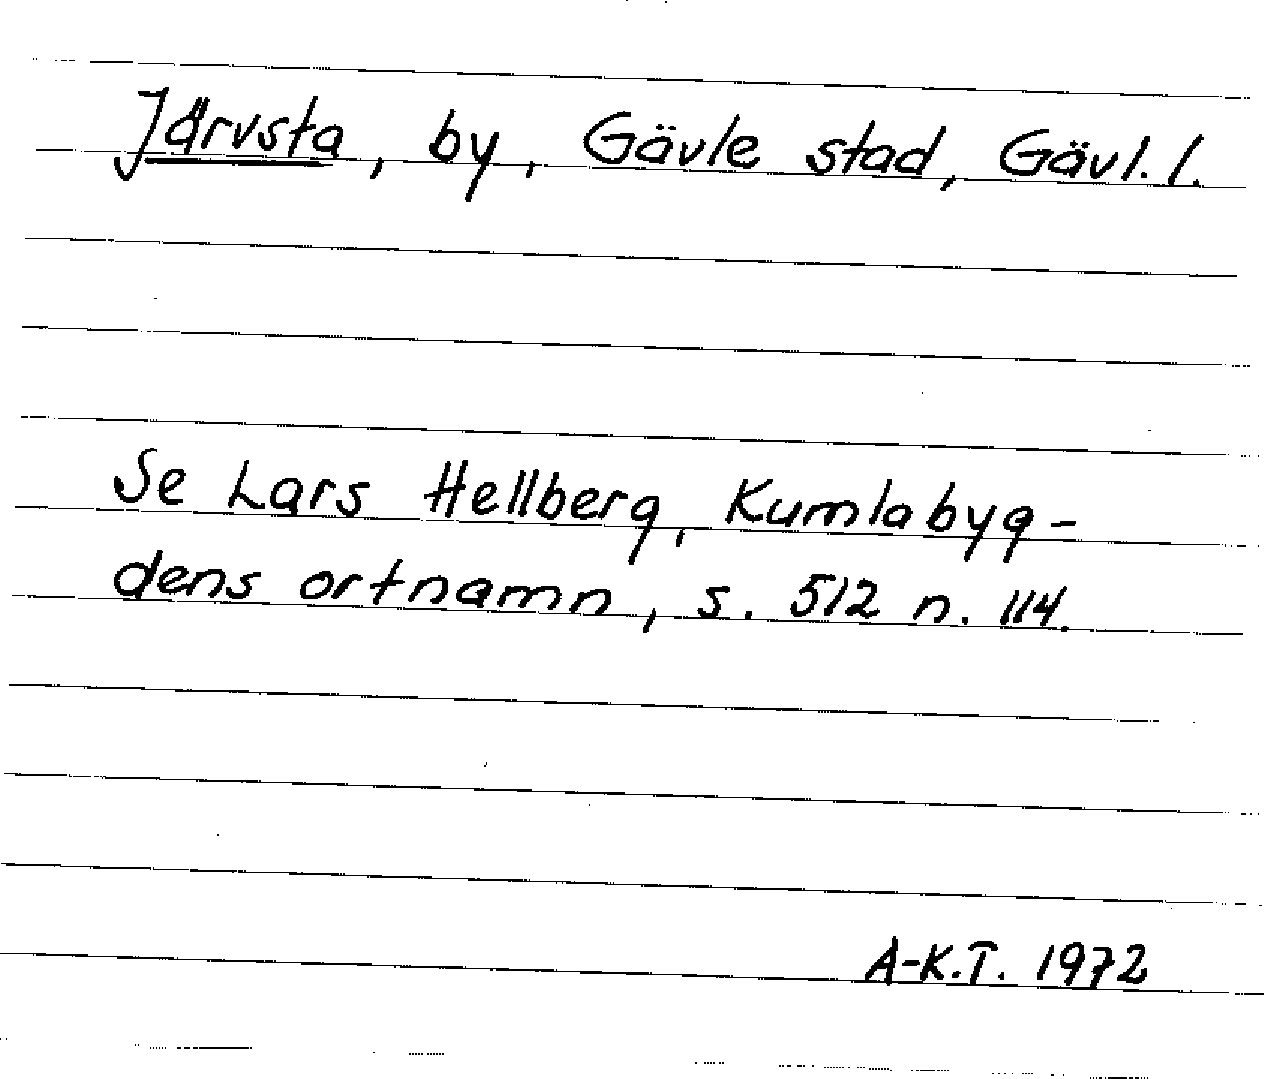 Järvsta, by, Gävle stad, Gävl. l.
Se Lars Hellberg, Kumlabyg-
dens ortnamn, s. 512 n. 114.
A-K.T. 1972